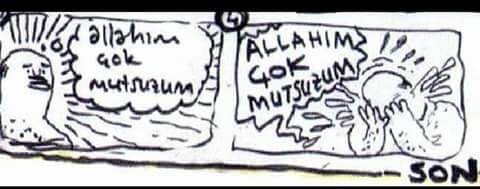 allahım
çok
mutsuzum
4
ALLAHIM
ÇOK
MUTSUZUM
SON